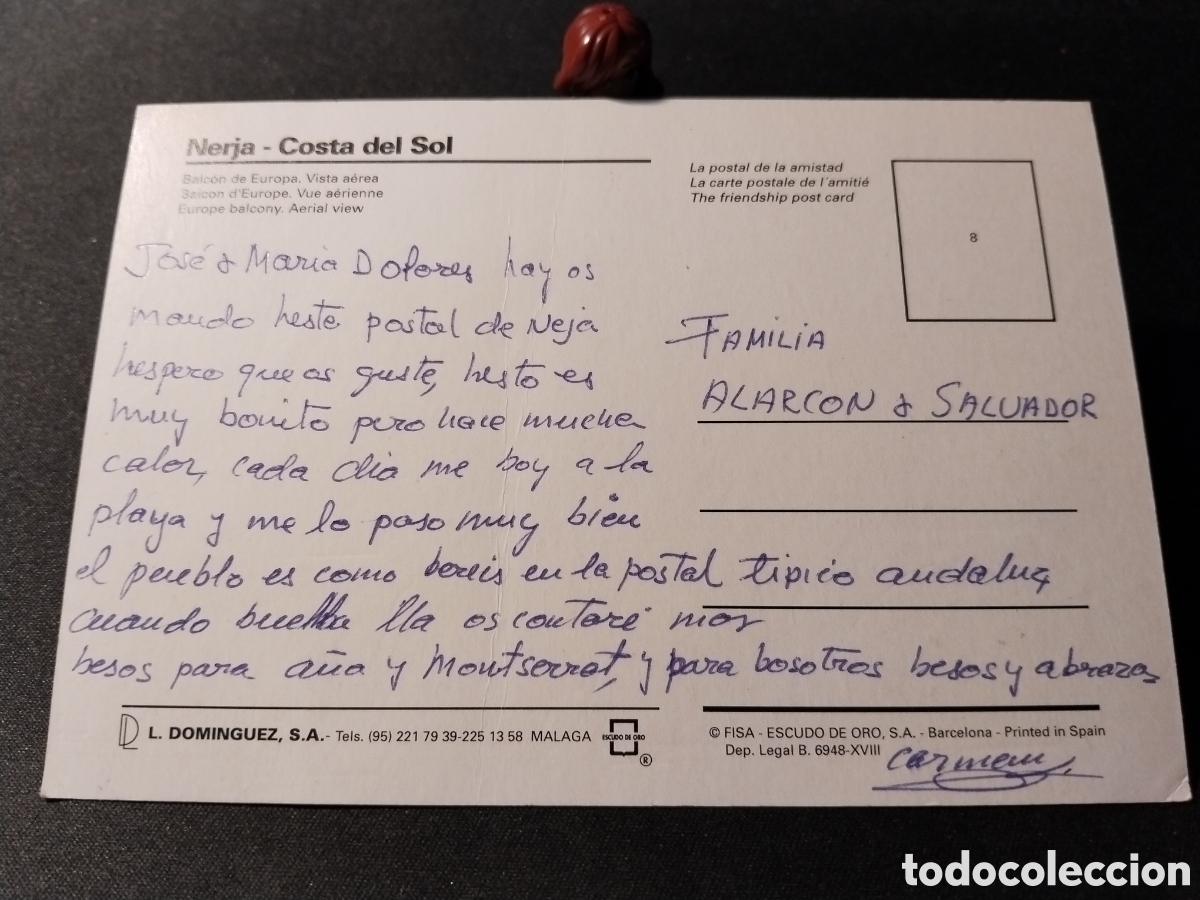 Nerja - Costa del Sol
Balcón de Europa. Vista aérea
Balcon d'Europe. Vue aérienne
Europe balcony. Aerial view
La postal de la amistad
La carte postale de l'amitié
The friendship post card
8
José & Maria Dolores hay os
mando heste postal de Neja
hespero que os guste, hesto es
muy bonito pero hace mucha
calor, cada dia me boy a la
playa y me lo paso muy bien
el pueblo es como bereis en la postal tipico andaluz
cuando lla os contaré mas
besos para aña y Montserrat, y para bosotros besos y abrazos
FAMILIA
ALARCON & SALVADOR
L. DOMINGUEZ, S.A.- Tels. (95) 221 79 39-225 13 58 MALAGA
ESCUDO DE ORO
®
© FISA - ESCUDO DE ORO, S.A. - Barcelona - Printed in Spain
Dep. Legal B. 6948-XVIII
Carmen
todocoleccion